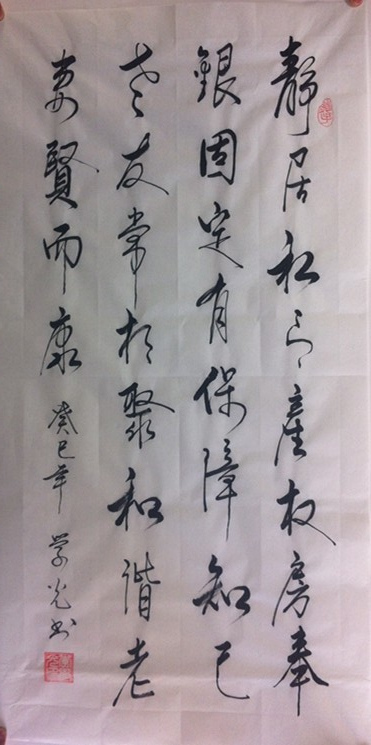 靜居私己產权房奉
銀固定有保障知己
老友常相聚和諧老
妻賢而康 癸巳年 学光书